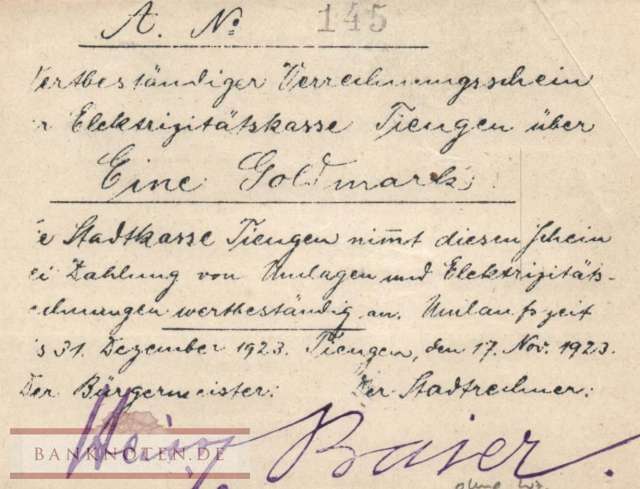 A. No 145
Wertbeständiger Verrechnungsschein
Elektrizitätskasse Tiengen über
Eine Goldmark.
Stadtkasse Tiengen nimmt diesen Schein
Zahlung von Umlagen und Elektrizitäts-
wertbeständig an. Umlaufszeit
31. Dezember 1923. Tiengen, den 17. Nov. 1923.
Der Bürgermeister: Der Stadtrechner:
Baier.
BANKNOTEN.DE
ohne Wz.